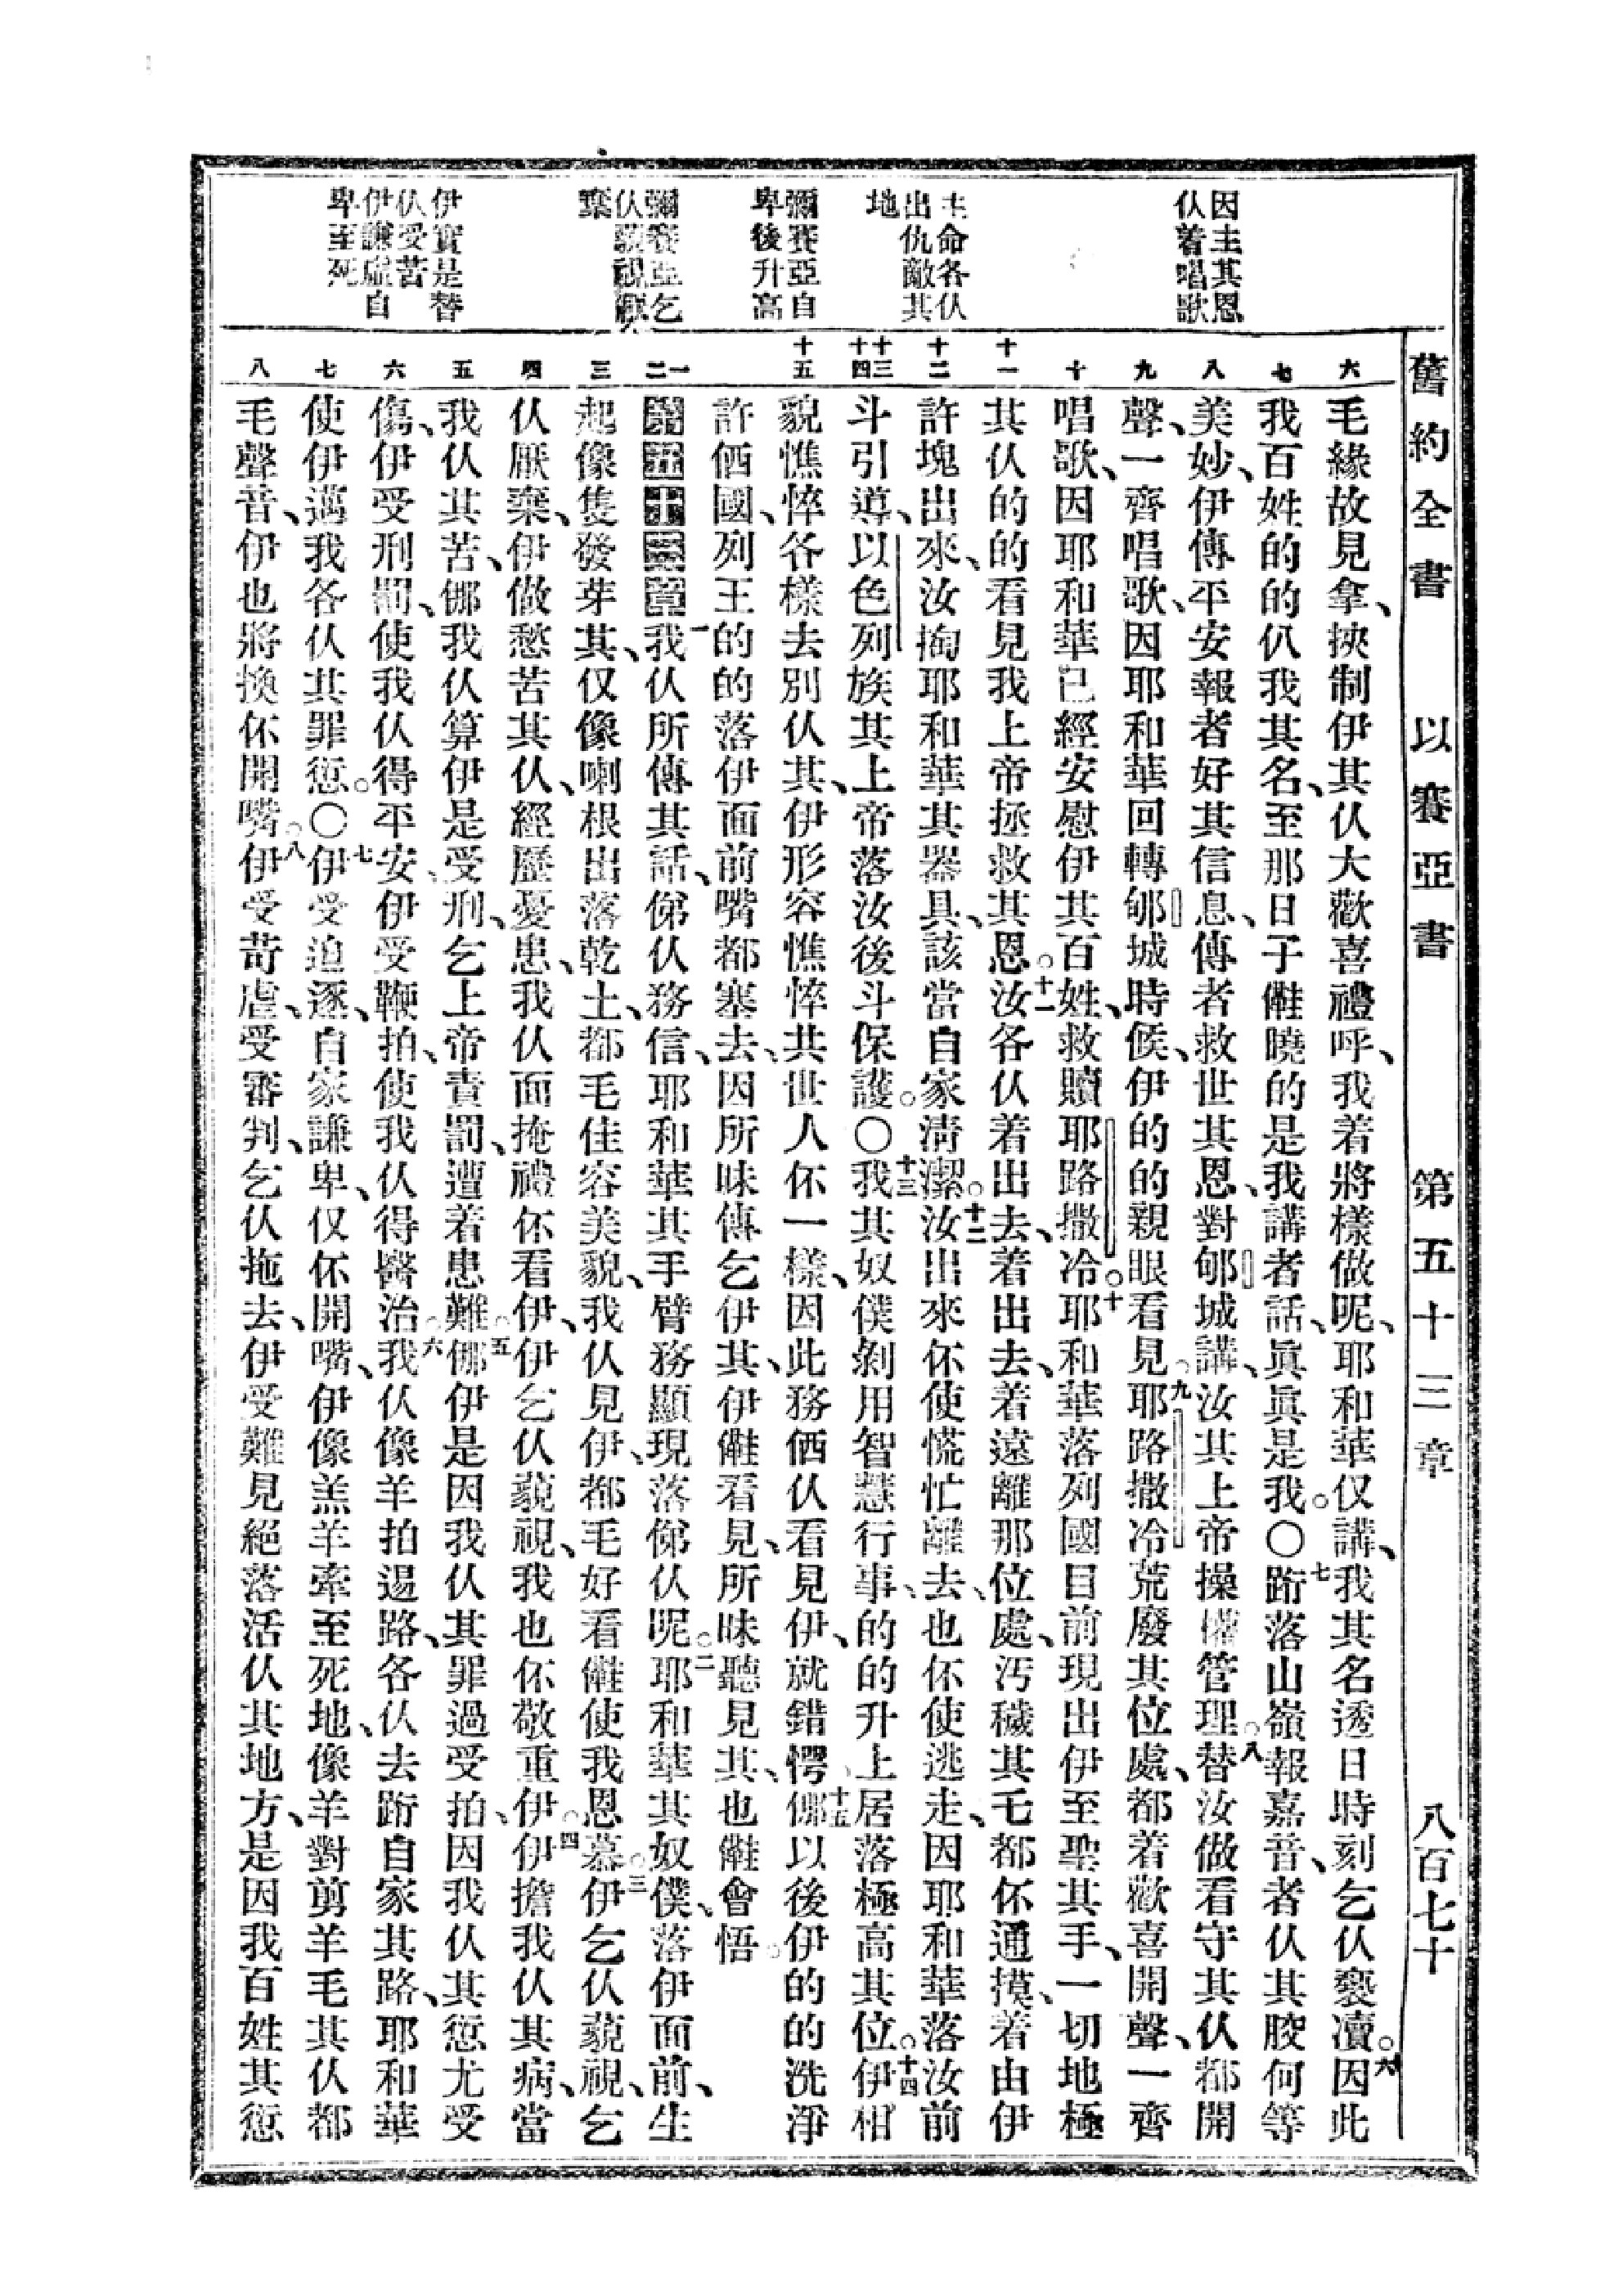 舊約全書 以賽亞書 第五十三章 八百七十
因主其恩
仫着唱歌
主命各仫
出仇敵其
地
彌賽亞自
卑後升高
彌賽亞乞
仫藐視厭
棄
伊實是替
仫受苦
伊謙虛自
卑至死
六 七 八 九 十 十一 十二 十三 十四 十五 一 二 三 四 五 六 七 八
毛緣故見拿、挾制伊其仫大歡喜禮呼、我着將樣做呢、耶和華仅講、我其名透日時刻乞仫褻凟。六因此
我百姓的的仈我其名、至那日子㒕曉的是我講者話、眞眞是我。〇七跕落山嶺報嘉音、者仫其骹何等
美妙、伊傳平安報者好其信息、傳者救世其恩、對郇城講、汝其上帝操權管理。八替汝做看守其仫都開
聲、一齊唱歌、因耶和華回轉郇城時候、伊的的親眼看見。九耶路撒冷荒廢其位處、都着歡喜開聲、一齊
唱歌、因耶和華已經安慰伊其百姓、救贖耶路撒冷。十耶和華落列國目前現出伊至聖其手、一切地極
其仫的的看見我上帝拯救其恩。十一汝各仫着出去、着出去、着遠離那位處、汚穢其乇都伓通摸、着由伊
許塊出來、汝掏耶和華其器具、該當自家淸潔。十二汝出來伓使慌忙離去、也伓使逃走、因耶和華落汝前
斗引導、以色列族其上帝落汝後斗保護。〇十三我其奴僕剝用智慧行事、的的升上、居落極高其位。十四伊相
貌憔悴各樣去別仫其、伊形容憔悴共世人伓一樣、因此務価仫看見伊、就錯愕。十五㑚以後伊的的洗淨
許価國、列王的的落伊面前嘴都塞去、因所昧傳乞伊其、伊㒕看見、所昧聽見其、也㒕會悟。
第五十三章 一我仫所傳其話、俤仫務信、耶和華其手臂務顯現落俤仫呢。二耶和華其奴僕、落伊面前、生
起像隻發芽其、仅像喇根出落乾土、都毛佳容美貌、我仫見伊、都毛好看㒕使我恩慕。三伊乞仫藐視、乞
仫厭棄、伊做愁苦其仫、經歷憂患、我仫面掩禮伓看伊、伊乞仫藐視、我也伓敬重伊。四伊擔我仫其病、當
我仫其苦、㑚我仫算伊是受刑、乞上帝責罰、遭着患難。五㑚伊是因我仫其罪過受拍、因我仫其愆尤受
傷、伊受刑罰、使我仫得平安、伊受鞭拍、使我仫得醫治。六我仫像羊拍逿路、各仫去跕自家其路、耶和華
使伊邁我各仫其罪愆。〇七伊受迫逐、自家謙卑、仅伓開嘴、伊像羔羊牽至死地、像羊對剪羊毛其仫都
毛聲音、伊也將換伓開嘴。八伊受苛虐、受審判、乞仫拖去、伊受難見絕落活仫其地方、是因我百姓其愆